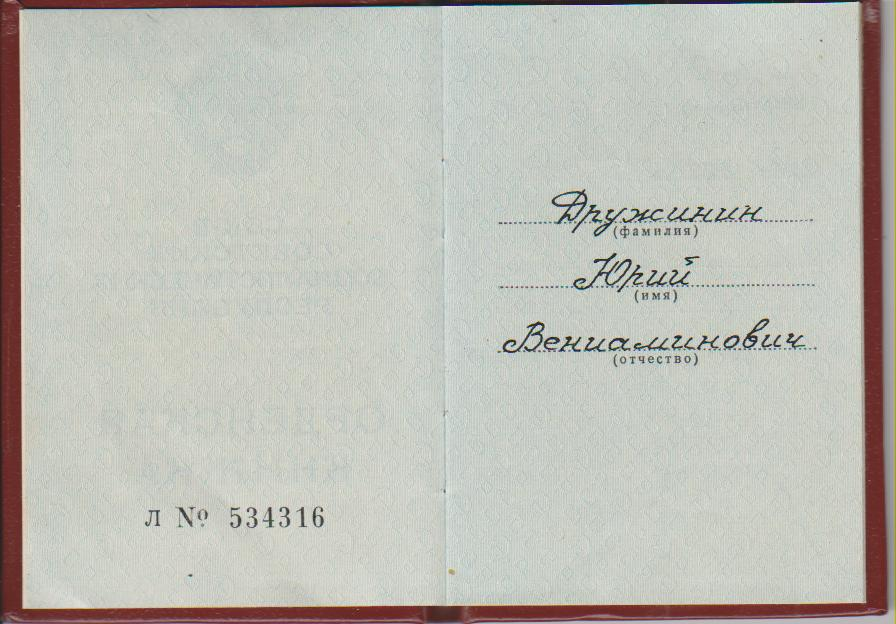 л № 534316
Дружинин
(фамилия)
Юрий
(имя)
Вениаминович
(отчество)